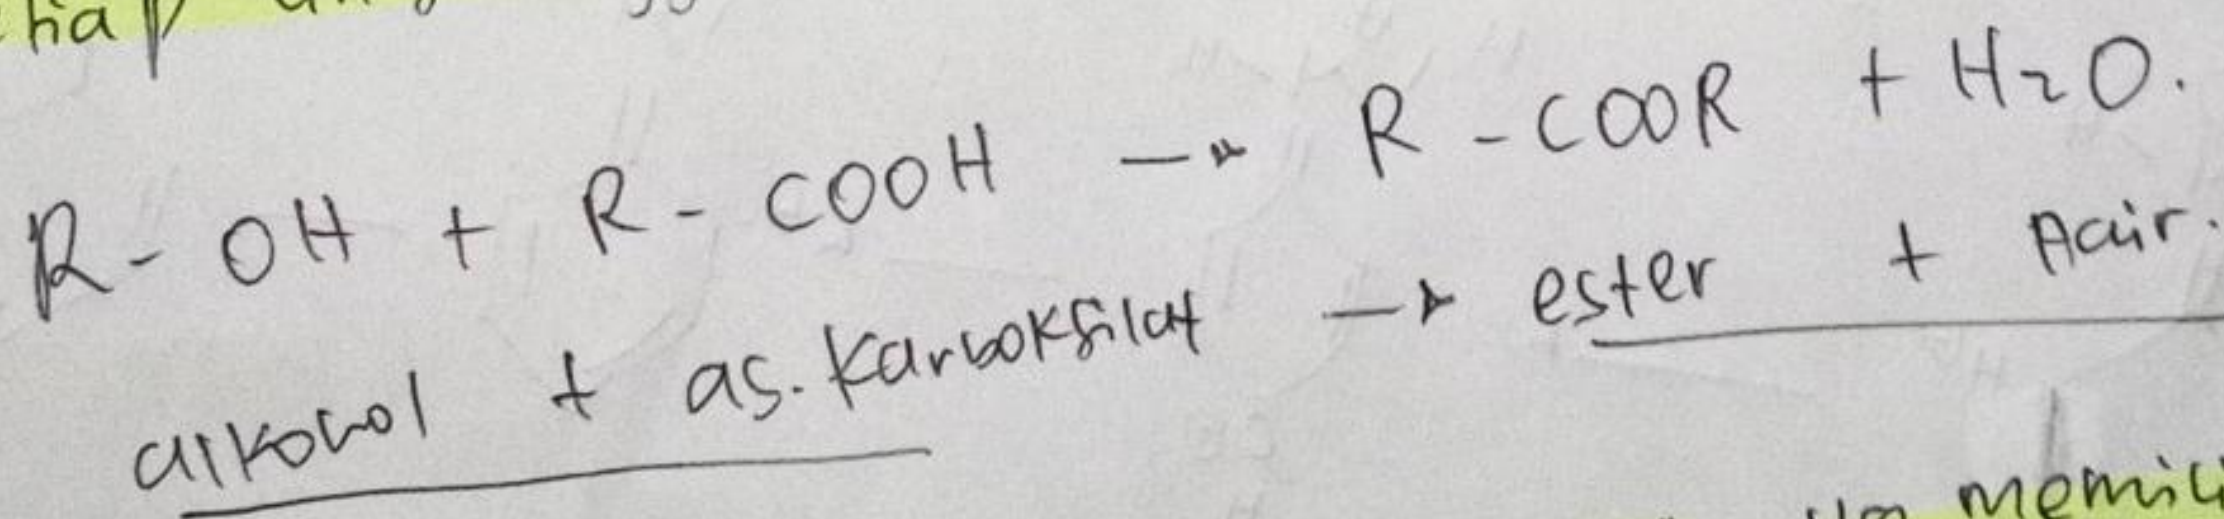 hap
R - OH + R - COOH → R - COOR + H2O.
alkohol + as. Karboksilat → ester + Aair.
memili